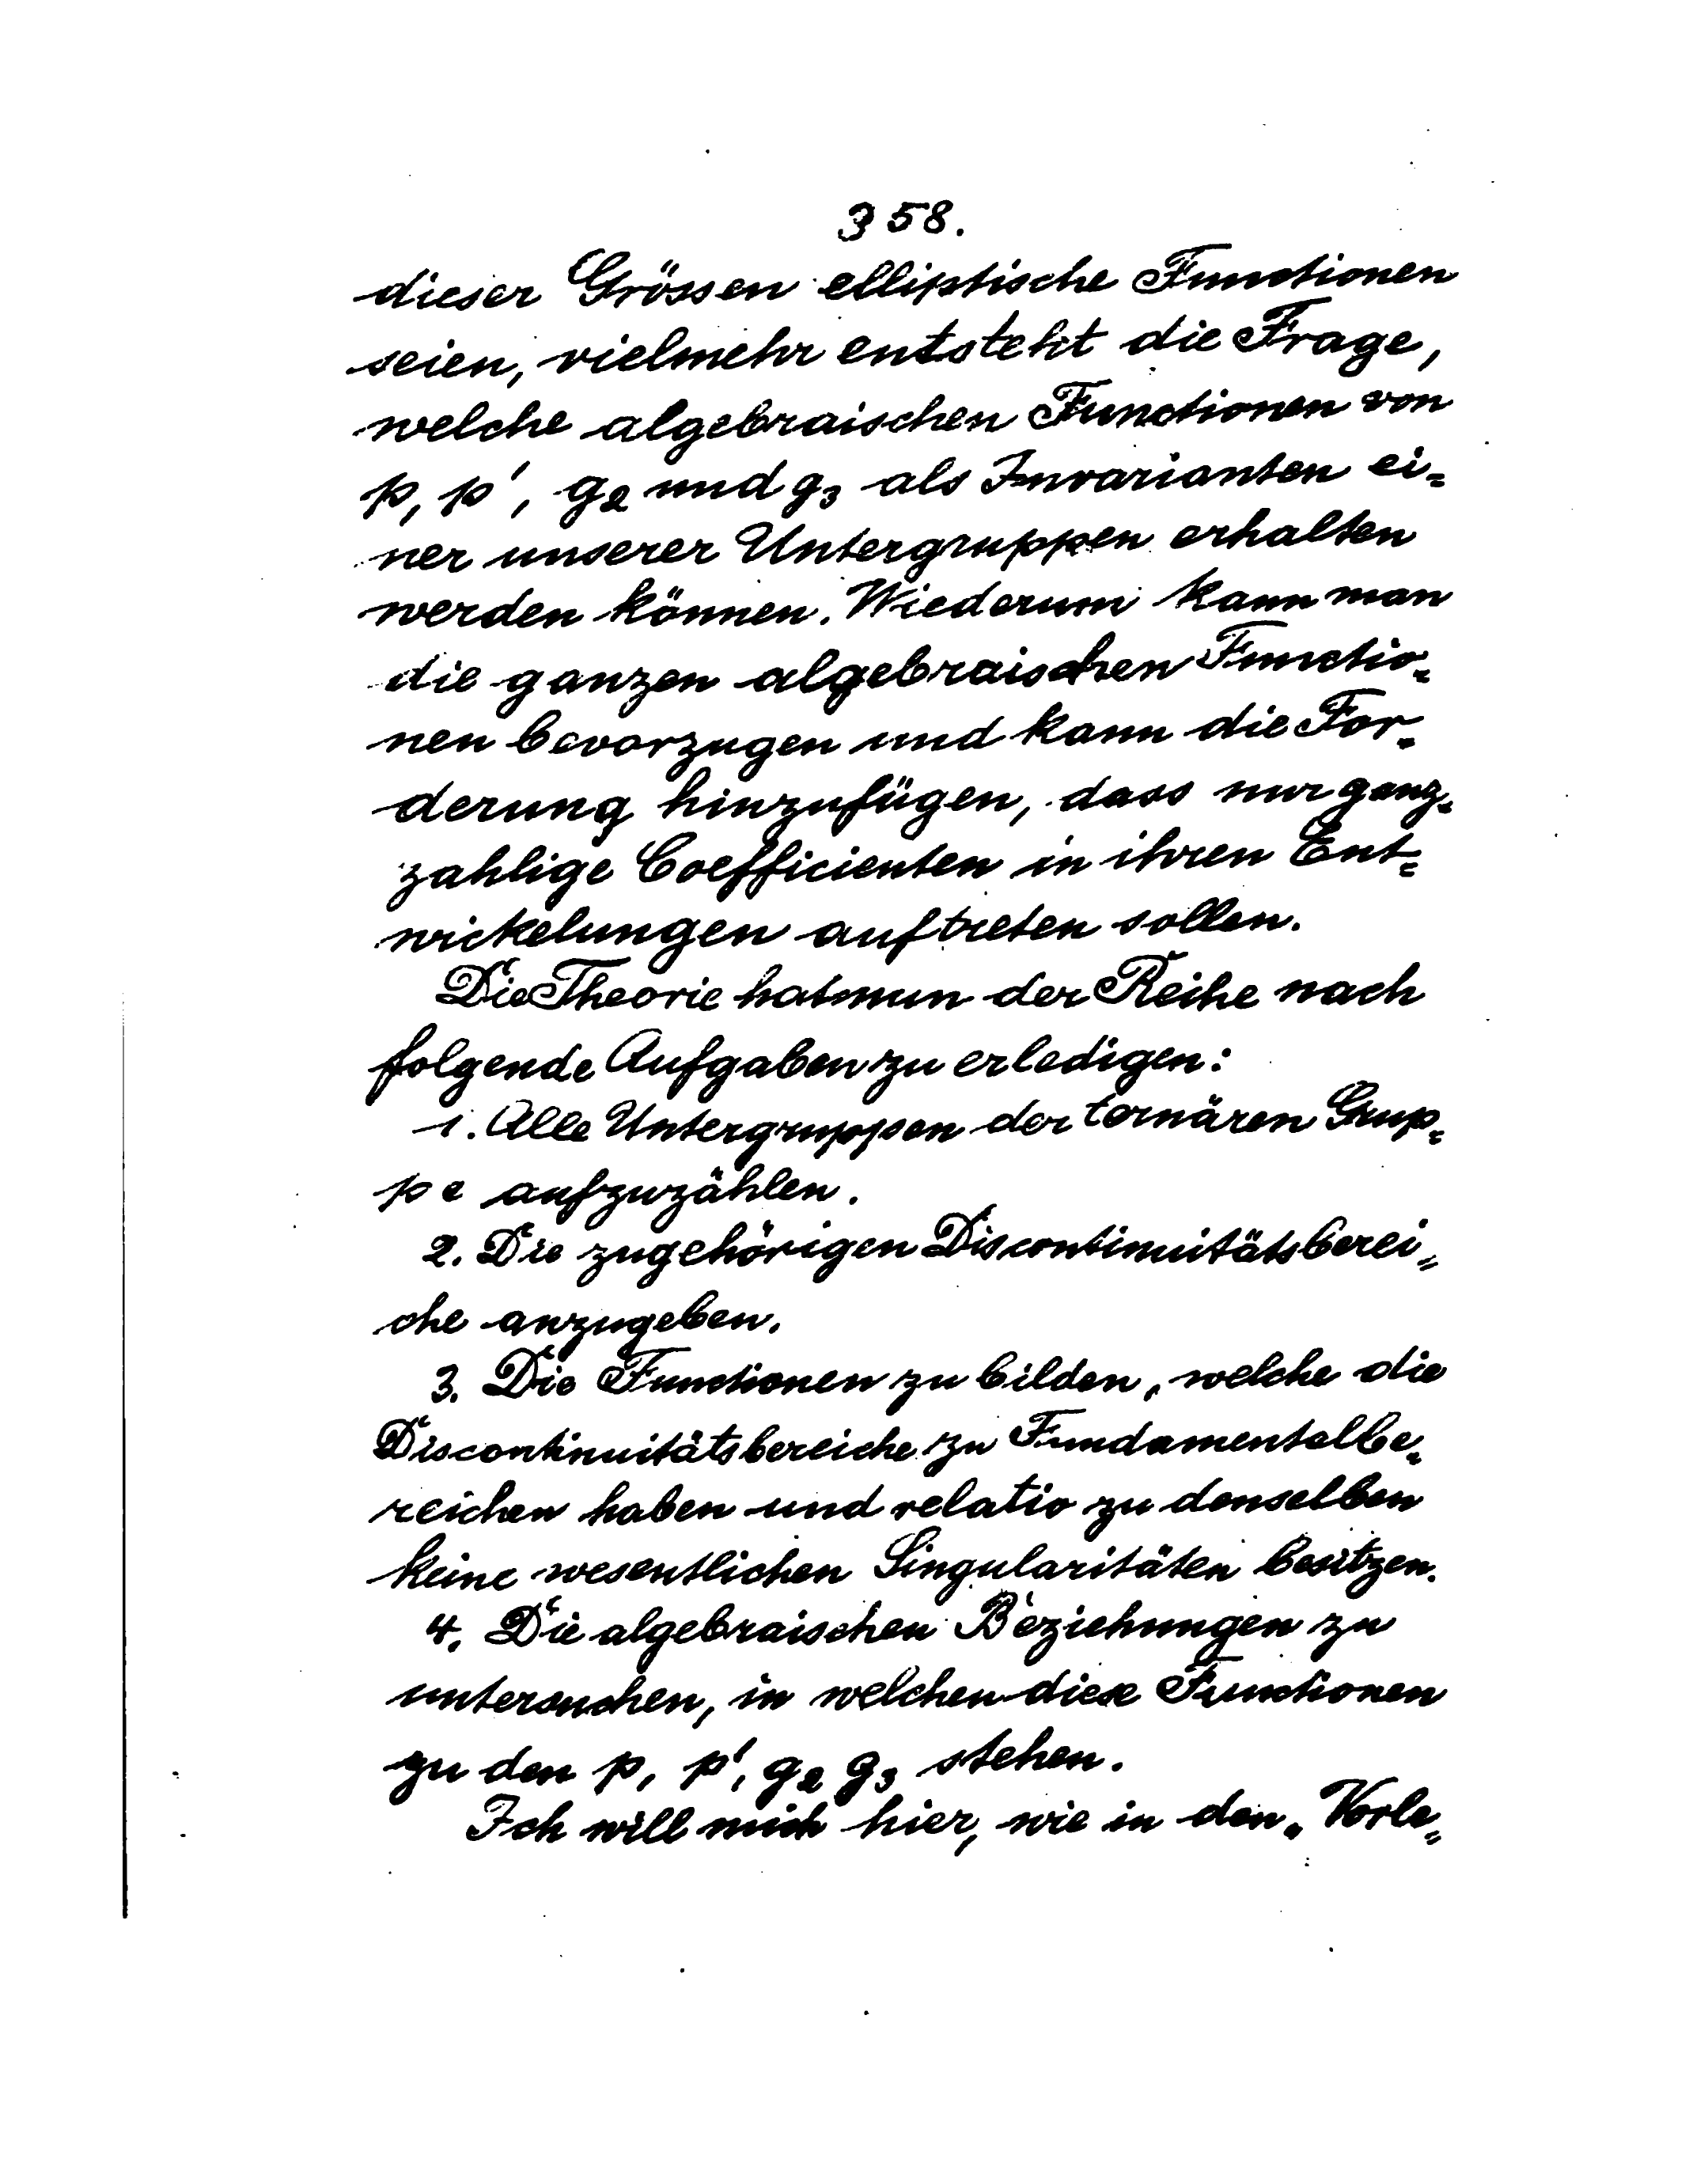 358.
dieser Grössen elliptische Functionen
seien, vielmehr entsteht die Frage,
welche algebraischen Functionen von
p, p', g₂ und g₃ als Invarianten ei=
ner unserer Untergruppen erhalten
werden können. Wiederum kann man
die ganzen algebraischen Functio=
nen bevorzugen und kann die For=
derung hinzufügen, dass nur ganz=
zahlige Coefficienten in ihren Ent=
wickelungen auftreten sollen.
Die Theorie hat nun der Reihe nach
folgende Aufgaben zu erledigen:
1. Alle Untergruppen der ternären Grup=
pe aufzuzählen.
2. Die zugehörigen Discontinuitätsberei=
che anzugeben.
3. Die Functionen zu bilden, welche die
Discontinuitätsbereiche zu Fundamentalbe=
reichen haben und relativ zu denselben
keine wesentlichen Singularitäten besitzen.
4. Die algebraischen Beziehungen zu
untersuchen, in welchen diese Functionen
zu den p, p', g₂ g₃ stehen.
Ich will mich hier, wie in den „Vorle=